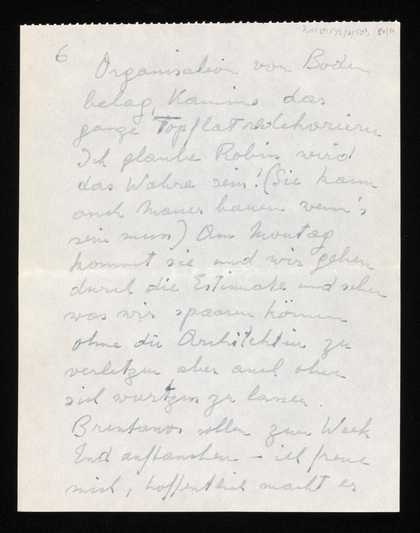 6
Organisation von Boden
belag, Kamine, das
ganze Topflat redekorieren
Ich glaube Robin wird
das Wahre sein! (Sie kann
auch Mauer bauen wenn's
sein muss) Am Montag
kommt sie und wir gehen
durch die Estimate und sehen
was wir sparen können
ohne die Architektin zu
verletzen aber auch ohne
sich zu lassen.
Brentanos wollen zum Week
End auftauchen – ich freue
mich, hoffentlich macht es